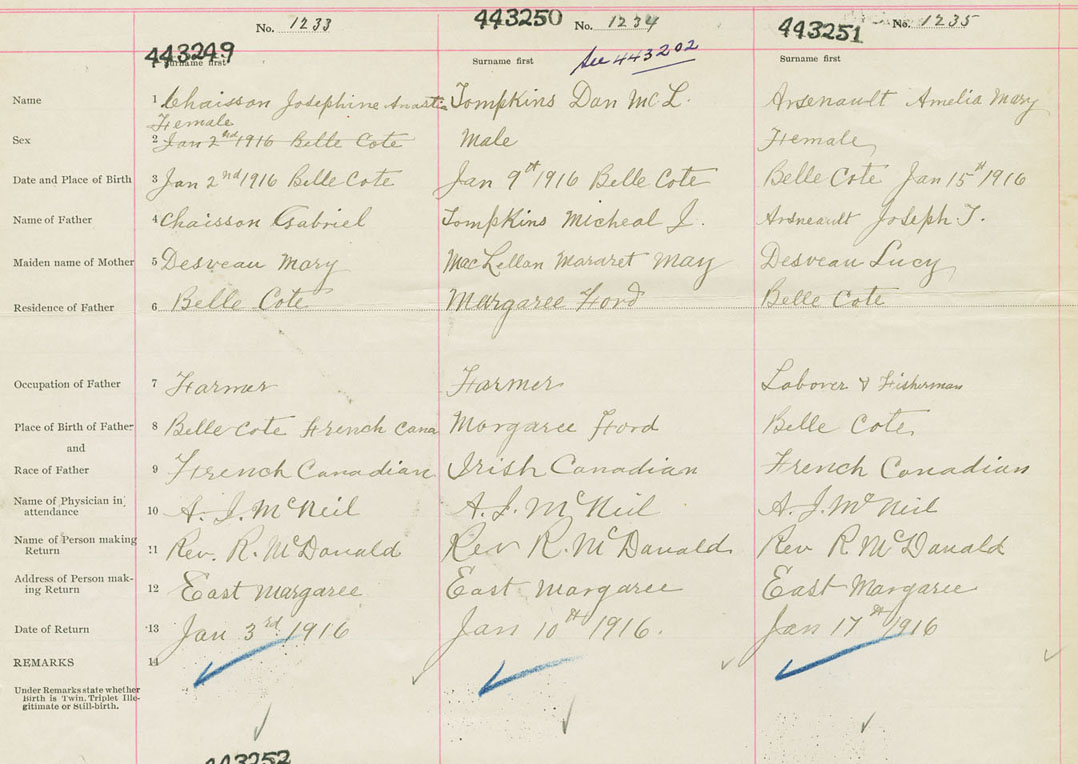 No. 1233
443250 No. 1234
443251 No. 1235
443249
Surname first
Surname first
See 443202
Surname first
Name 1 Chaisson Josephine Anastia Tompkins Dan McL. Arsenault Amelia Mary
Female
Sex 2 Jan 2nd 1916 Belle Cote Male Female
Date and Place of Birth 3 Jan 2nd 1916 Belle Cote Jan 9th 1916 Belle Cote Belle Cote Jan 15th 1916
Name of Father 4 Chaisson Gabriel Tompkins Micheal J. Arsneault Joseph T.
Maiden name of Mother 5 Desveau Mary MacLellan Mararet May Desveau Lucy
Residence of Father 6 Belle Cote Margaree Ford Belle Cote
Occupation of Father 7 Farmer Farmer Laborer & Fisherman
Place of Birth of Father 8 Belle Cote French Cana Margaree Ford Belle Cote
and
Race of Father 9 French Canadian Irish Canadian French Canadian
Name of Physician in
attendance 10 A. J. McNeil A. J. McNeil A. J. McNeil
Name of Person making
Return 11 Rev. R. McDonald Rev R. McDonald Rev R. McDonald
Address of Person mak-
ing Return 12 East Margaree East Margaree East Margaree
Date of Return 13 Jan 3rd 1916 Jan 10th 1916. Jan 17th 1916
REMARKS 14
Under Remarks state whether
Birth is Twin, Triplet Ille-
gitimate or Still-birth.
443252